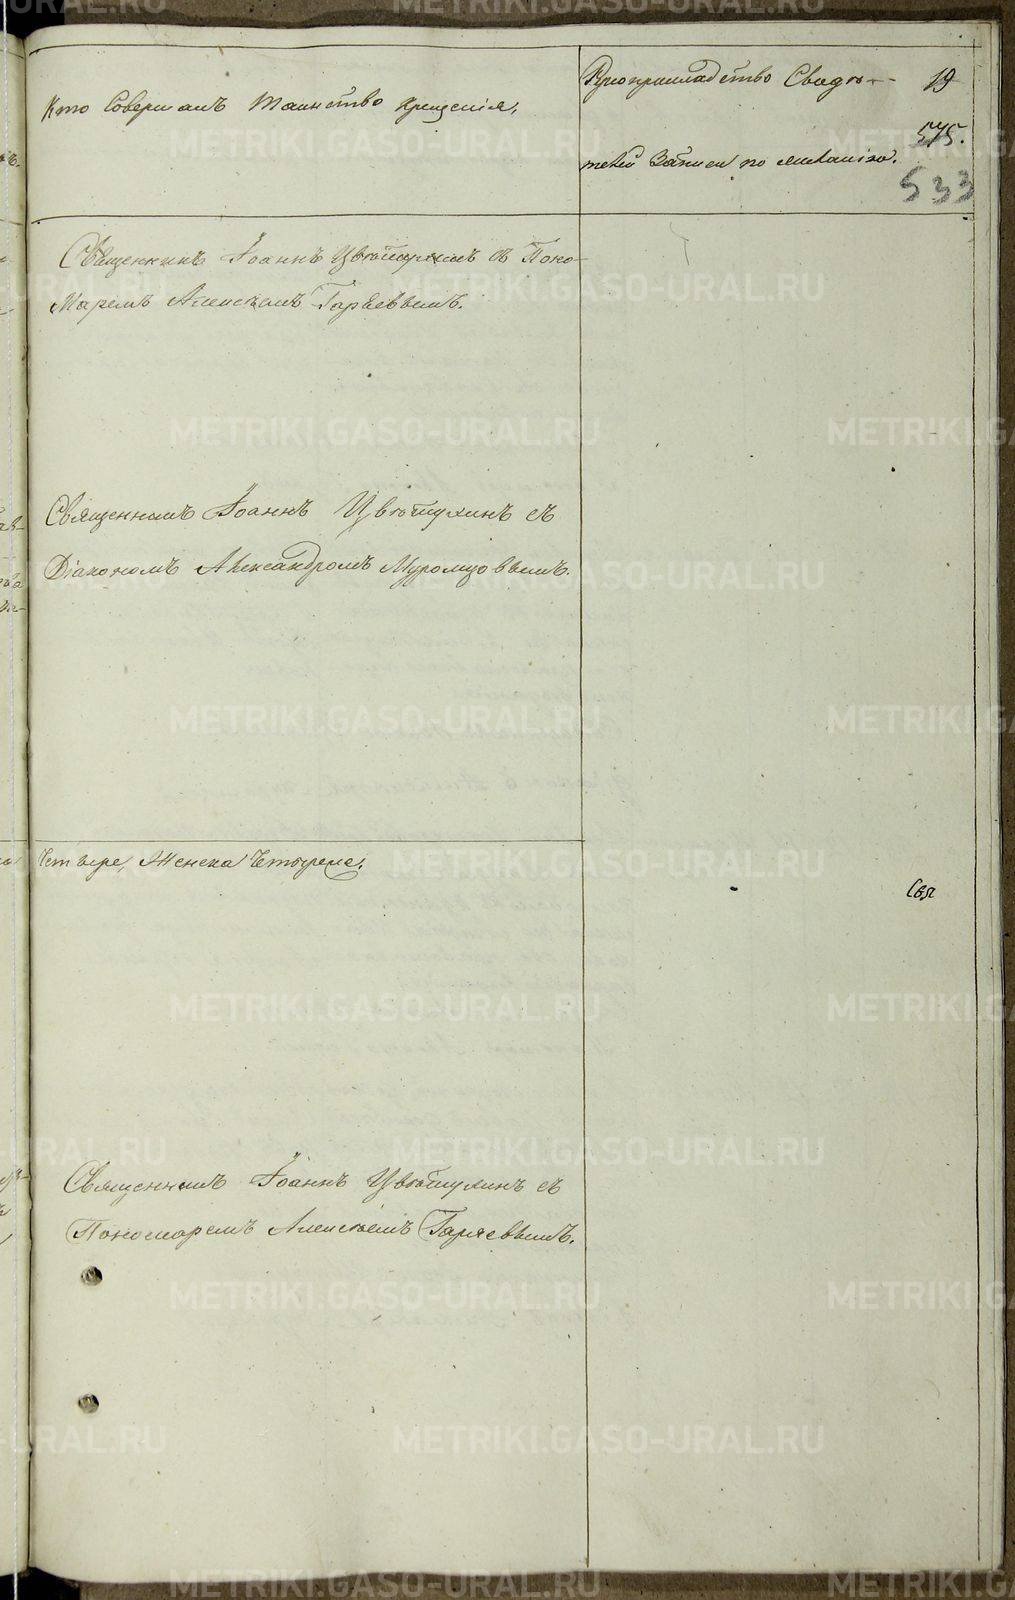 Кто Совершалъ Таинство Крещенія,
Рукоприкладство Свидѣ-
19
575.
телей Записи по желанію.
533
Священникъ Іоаннъ Цвѣтухинъ съ Поно-
маремъ Алексѣемъ Гаряевымъ.
Священникъ Іоаннъ Цвѣтухинъ съ
Діакономъ Александромъ Муромцовымъ.
Четыре, Женска Четыре.
Священникъ Іоаннъ Цвѣтухинъ съ
Пономаремъ Алексѣемъ Гаряевымъ.
METRIKI.GASO-URAL.RU